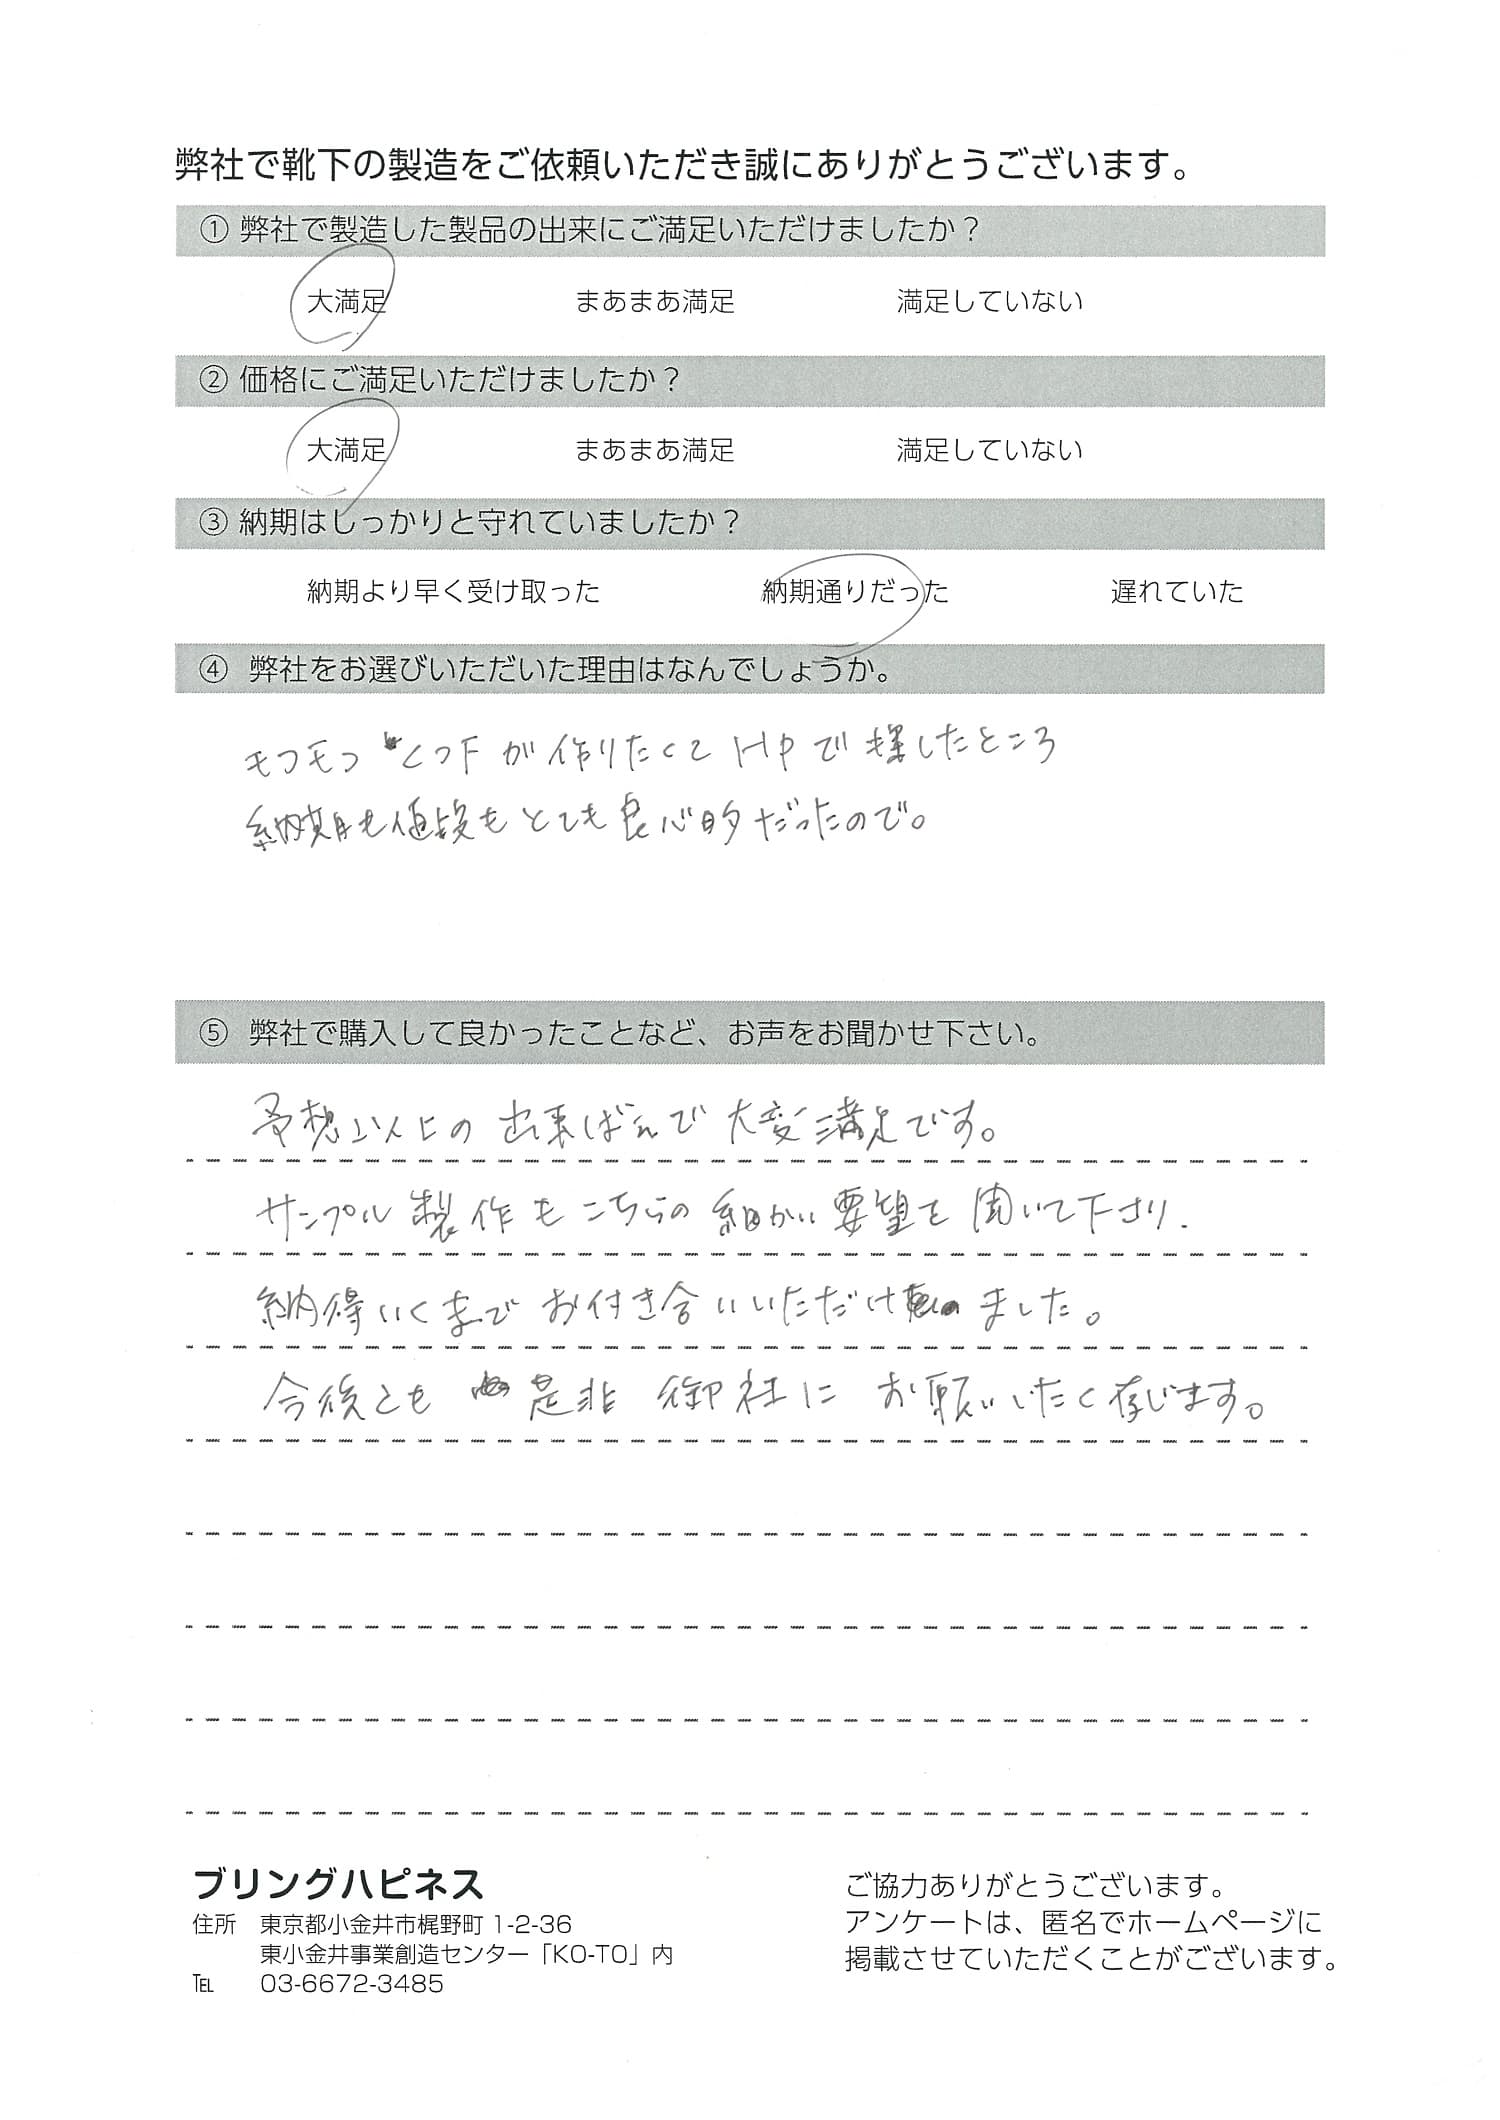 弊社で靴下の製造をご依頼いただき誠にありがとうございます。
① 弊社で製造した製品の出来にご満足いただけましたか？
大満足 まあまあ満足 満足していない
② 価格にご満足いただけましたか？
大満足 まあまあ満足 満足していない
③ 納期はしっかりと守れていましたか？
納期より早く受け取った 納期通りだった 遅れていた
④ 弊社をお選びいただいた理由はなんでしょうか。
モフモフくつ下が作りたくてHPで探したところ
納期も値段もとても良心的だったので。
⑤ 弊社で購入して良かったことなど、お声をお聞かせ下さい。
予想以上の出来ばえで大変満足です。
サンプル製作もこちらの細かい要望を聞いて下さり、
納得いくまでお付き合いいただけました。
今後とも是非御社にお願いいたく存じます。
ブリングハピネス
住所 東京都小金井市梶野町 1-2-36
東小金井事業創造センター「KO-TO」内
TEL 03-6672-3485
ご協力ありがとうございます。
アンケートは、匿名でホームページに
掲載させていただくことがございます。